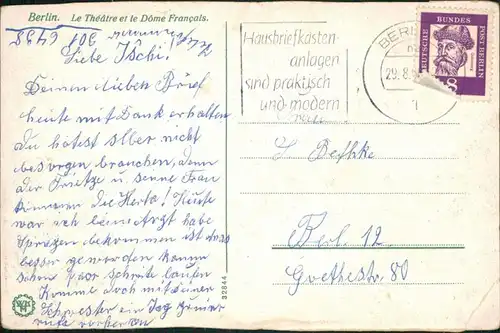 Berlin. Le Théâtre et le Dôme Français.
Liebe
Deinen lieben Brief
heute mit Dank erhalten
Du hätest selber nicht
besorgen brauchen, denn
der Frietze u seine Frau
die Herta! Heute
war ich beim Arzt habe
Spritzen bekommen ist etwas
besser geworden kann
schon paar schritte laufen
Komme doch mit deiner
Schwester ein Tag zu mir
rufe vorher an
32844
Hausbriefkasten-
anlagen
sind praktisch
und modern
BERLIN
29.8.
DEUTSCHE BUNDESPOST BERLIN
8
Bethke
Berl. 12
Goethestr. 80